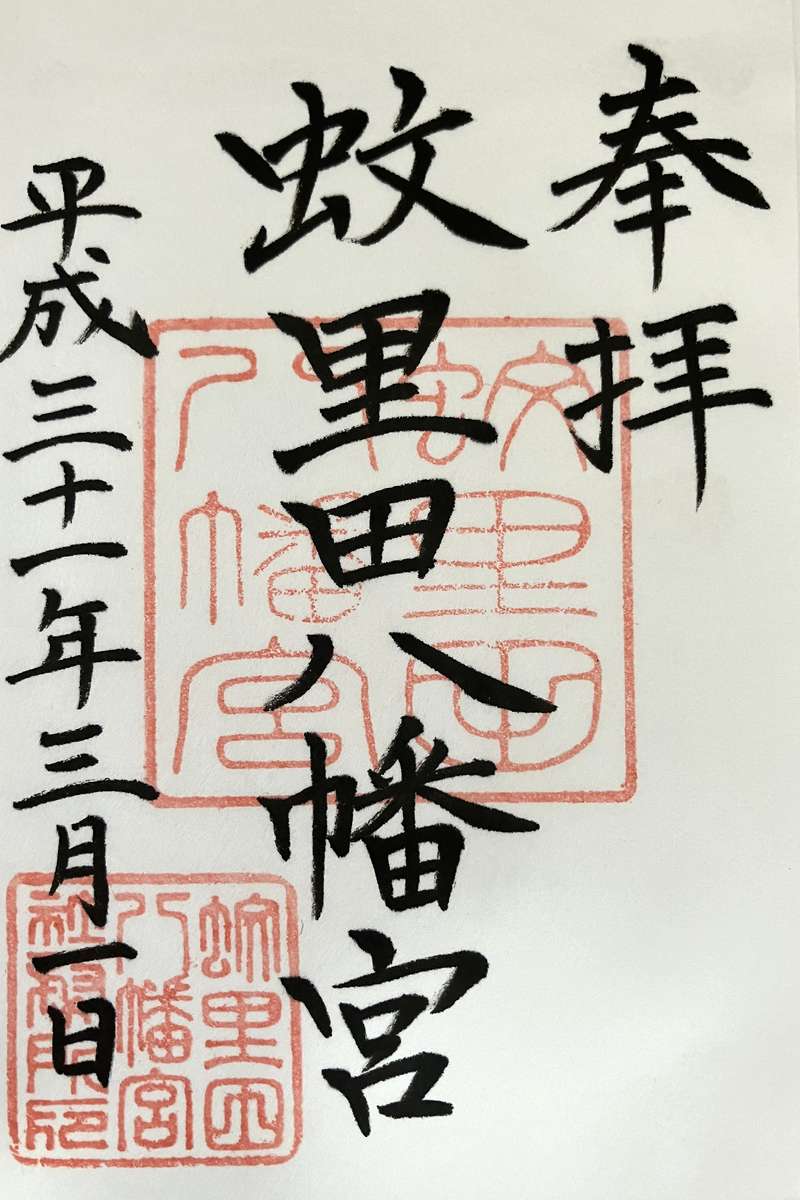 奉拝
蚊里田八幡宮
平成三十一年三月一日
蚊里田
八幡宮
蚊里田
八幡宮
社務所印